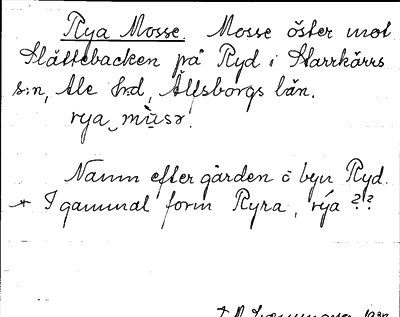 Rya Mosse. Mosse öster mot
Slättebacken på Ryd i Starrkärrs
s:n, Ale h:d, Älfsborgs län.
rya mùsə.
Namn efter gården o byn Ryd.
* I gammal form Ryra, rýa ??